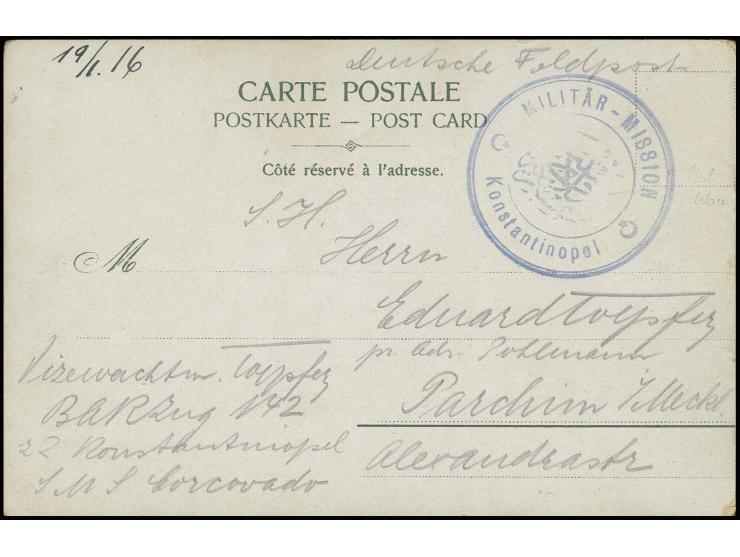 19/1.16
Deutsche Feldpost
CARTE POSTALE
POSTKARTE — POST CARD
Côté réservé à l'adresse.
MILITÄR-MISSION
Konstantinopel
S. H.
Herrn
Eduard Toepfer
pr. Adr. Pohlmann
Parchim i/Meckl.
Alexandrastr
Vizewachtm. Toepfer
BAKZug 142
zZ Konstantinopel
S M S Corcovado